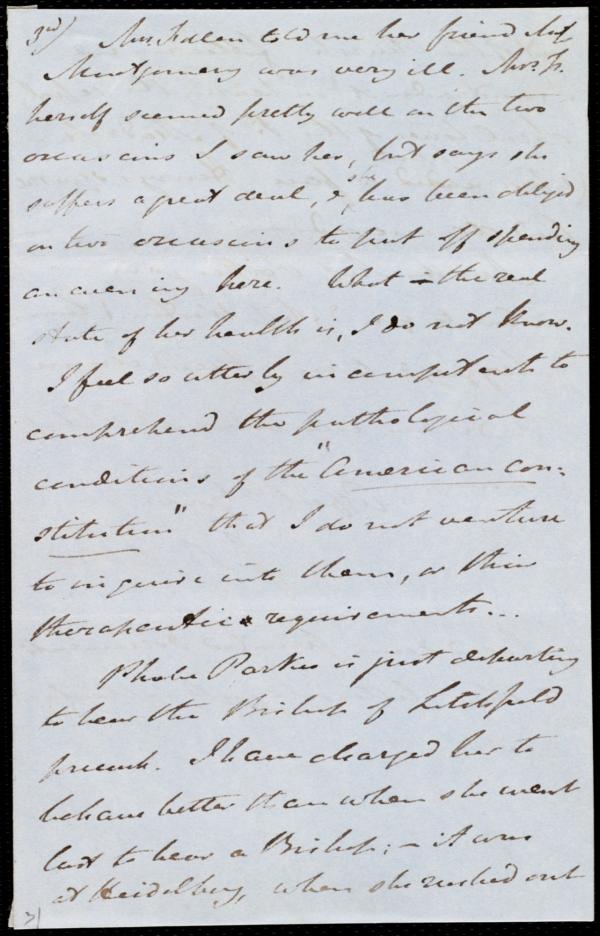 3rd) Mrs. Follen told me her friend Miss
Montgomery was very ill. Mrs. F.
herself seemed pretty well on the two
occasions I saw her, but says she
suffers a great deal, & she has been obliged
on two occasions to put off spending
an evening here. What the real
state of her health is, I do not know.
I feel so utterly incompetent to
comprehend the pathological
conditions of the "American con-
stitution" that I do not venture
to inquire into them, or their
therapeutic requirements...
Phoebe Parkes is just departing
to hear the Bishop of Litchfield
preach. I have charged her to
behave better than when she went
last to hear a Bishop; - it was
at Heidelberg, when she rushed out
3)